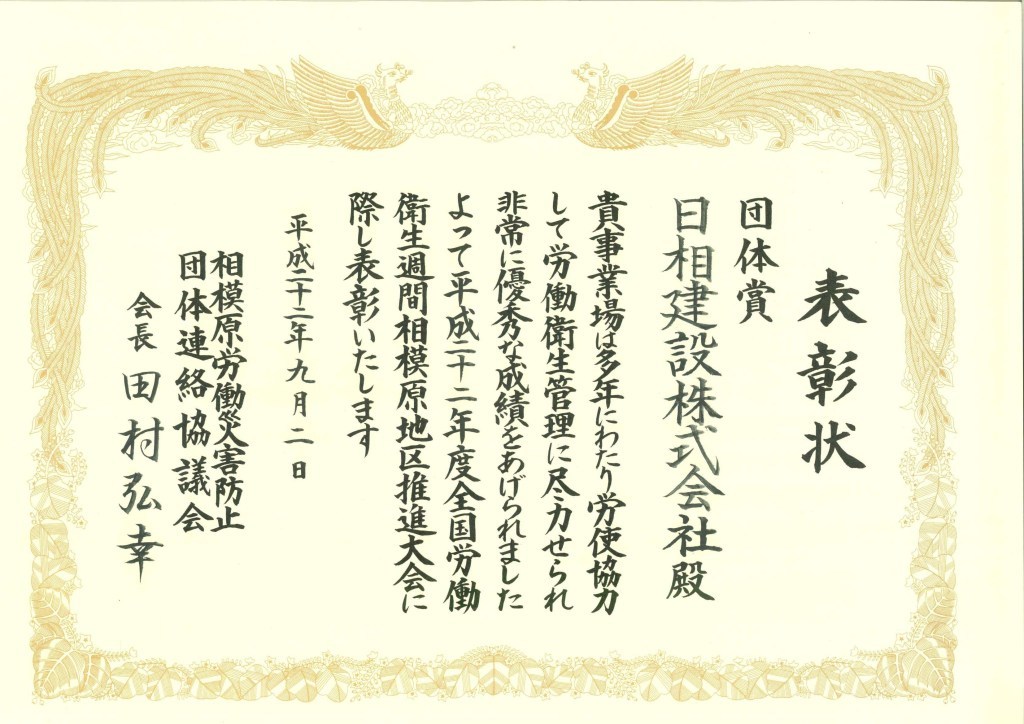 表彰状
団体賞
日相建設株式会社殿
貴事業場は多年にわたり労使協力
して労働衛生管理に尽力せられ
非常に優秀な成績をあげられました
よって平成二十二年度全国労働
衛生週間相模原地区推進大会に
際し表彰いたします
平成二十二年九月二日
相模原労働災害防止
団体連絡協議会
会長 田村弘幸